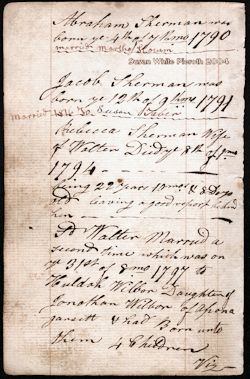 Abraham Sherman was
born ye 4th of 7 mo 1790
married Martha
Susan White Pieroth 2004
Jacob Sherman was
born ye 12th of 9 mo 1791
Married to Susan
Rebecca Sherman Wife
of Walter Died ye 8th of
1794
being 22 years & 8 Days
old leaving a good report behind
her
Sd Walter Married a
second time which was on
ye 31st of 8 mo 1797 to
Huldah Wilber Daughter of
Jonathan Wilber of Apona
gansett & had Born unto
them 4 Children
Viz